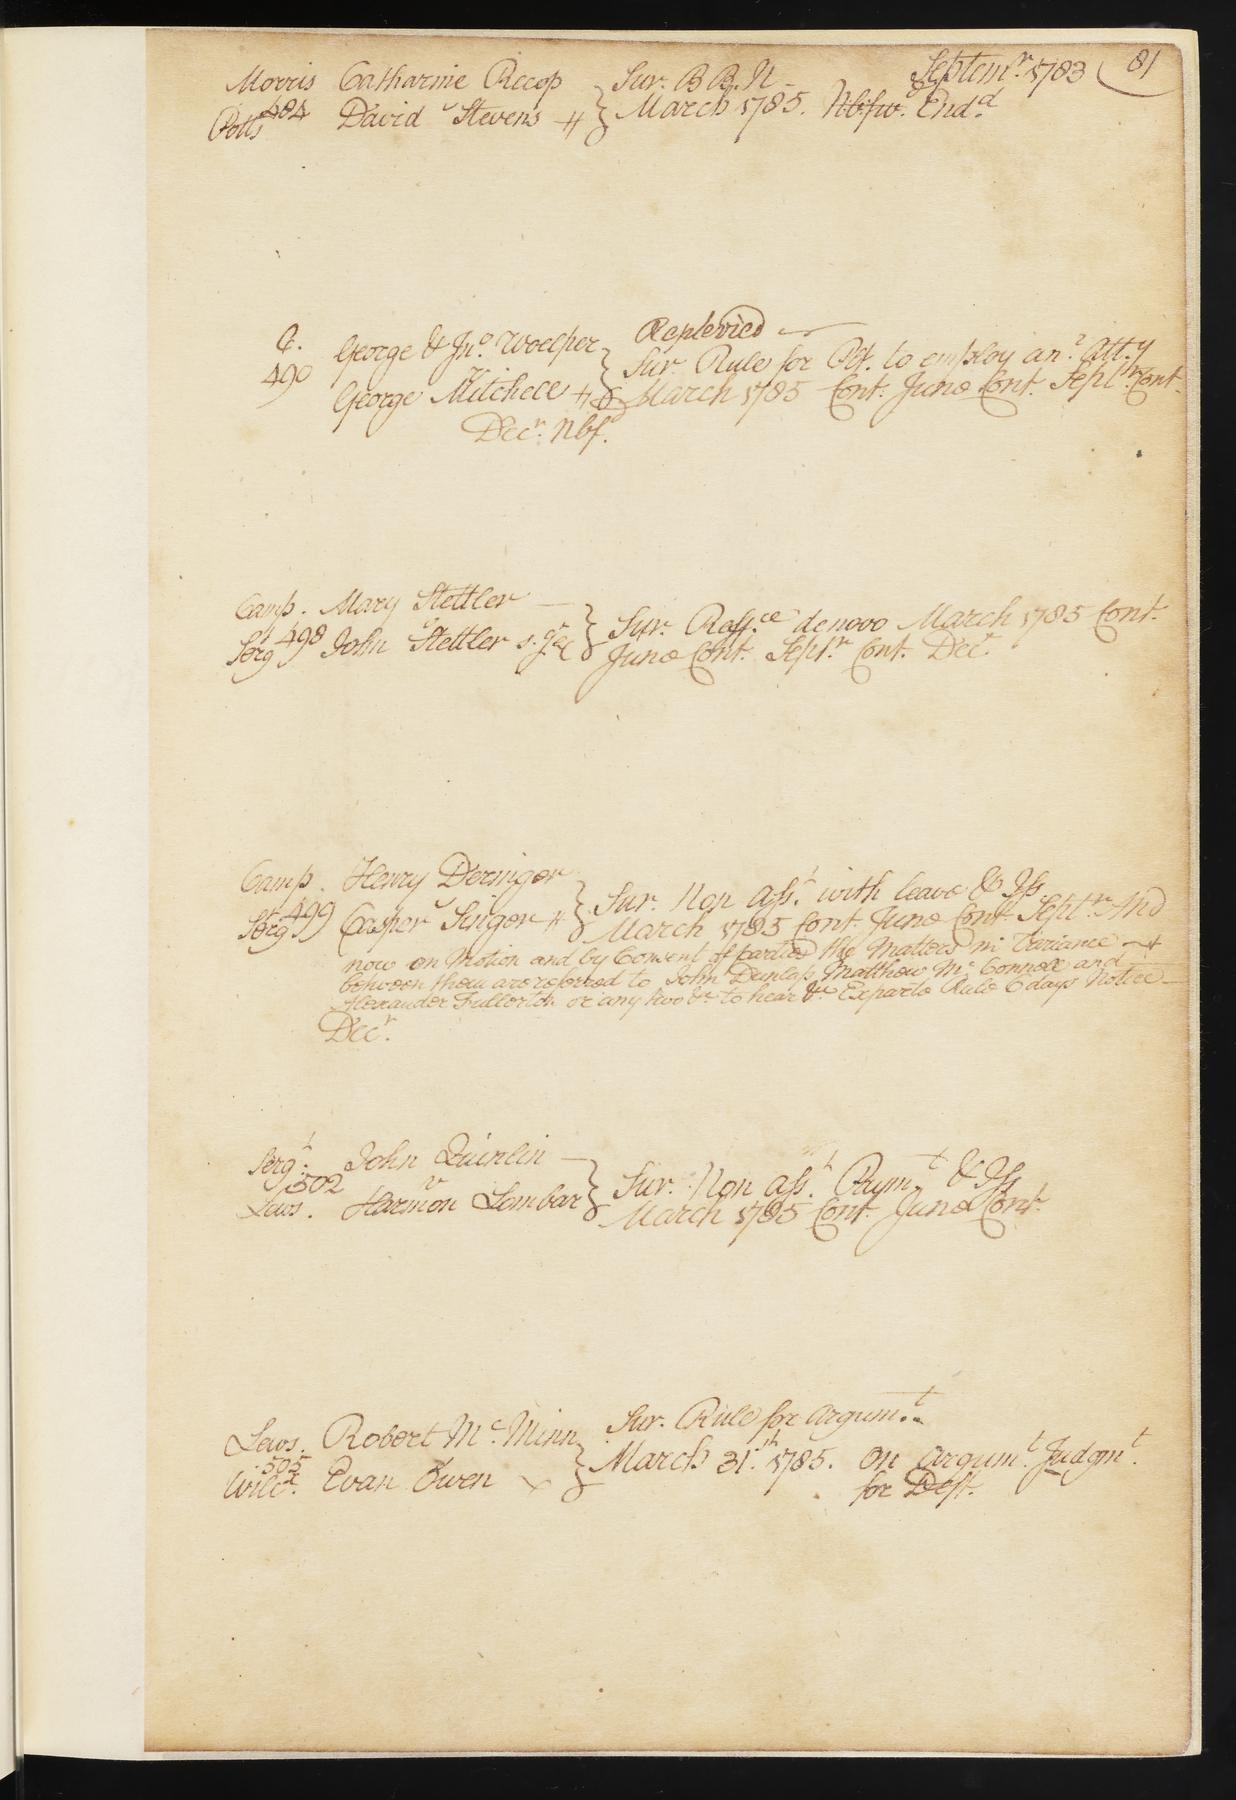 Septemr. 1783 81
Morris Catharine Sur. B B. N -
484
Potts David v Stevens March 1785. Endd.
Replevied
C. George & Jno. Woelper Sur. Rule for to employ anr. Atty
490 v
George Mitchell March 1785 Cont. June Cont. Septr. Cont.
Decr. Nbf.
Camp. Mary Stettler Sur. Reffce. denovo March 1785 Cont.
498 v
Serg John Stettler June Cont. Septr. Cont. Decr.
Camp. Henry Deringer Sur. Non Asst. with leave & Iss
499 v
Serg Casper Singer March 1785 Cont. June Cont. Septr. And
now on Motion and by Consent of parties the Matters in Variance
between them are referred to John Dunlap, Matthew Mc. Connell and
Alexander Fullerton or any two &c to hear &c Exparte Rule 6 days Notice
Decr.
Sergt. John Quinlin Sur. Non asst. Paymt. & Iss
502 v
Lews. Harmon Lombar March 1785 Cont. June Cont.
Lews. Robert Mc. Minn Sur. Rule for Argumt.
505 v
Evan Owen March 31th. 1785. On Argumt. Judgmt.
for Deft.